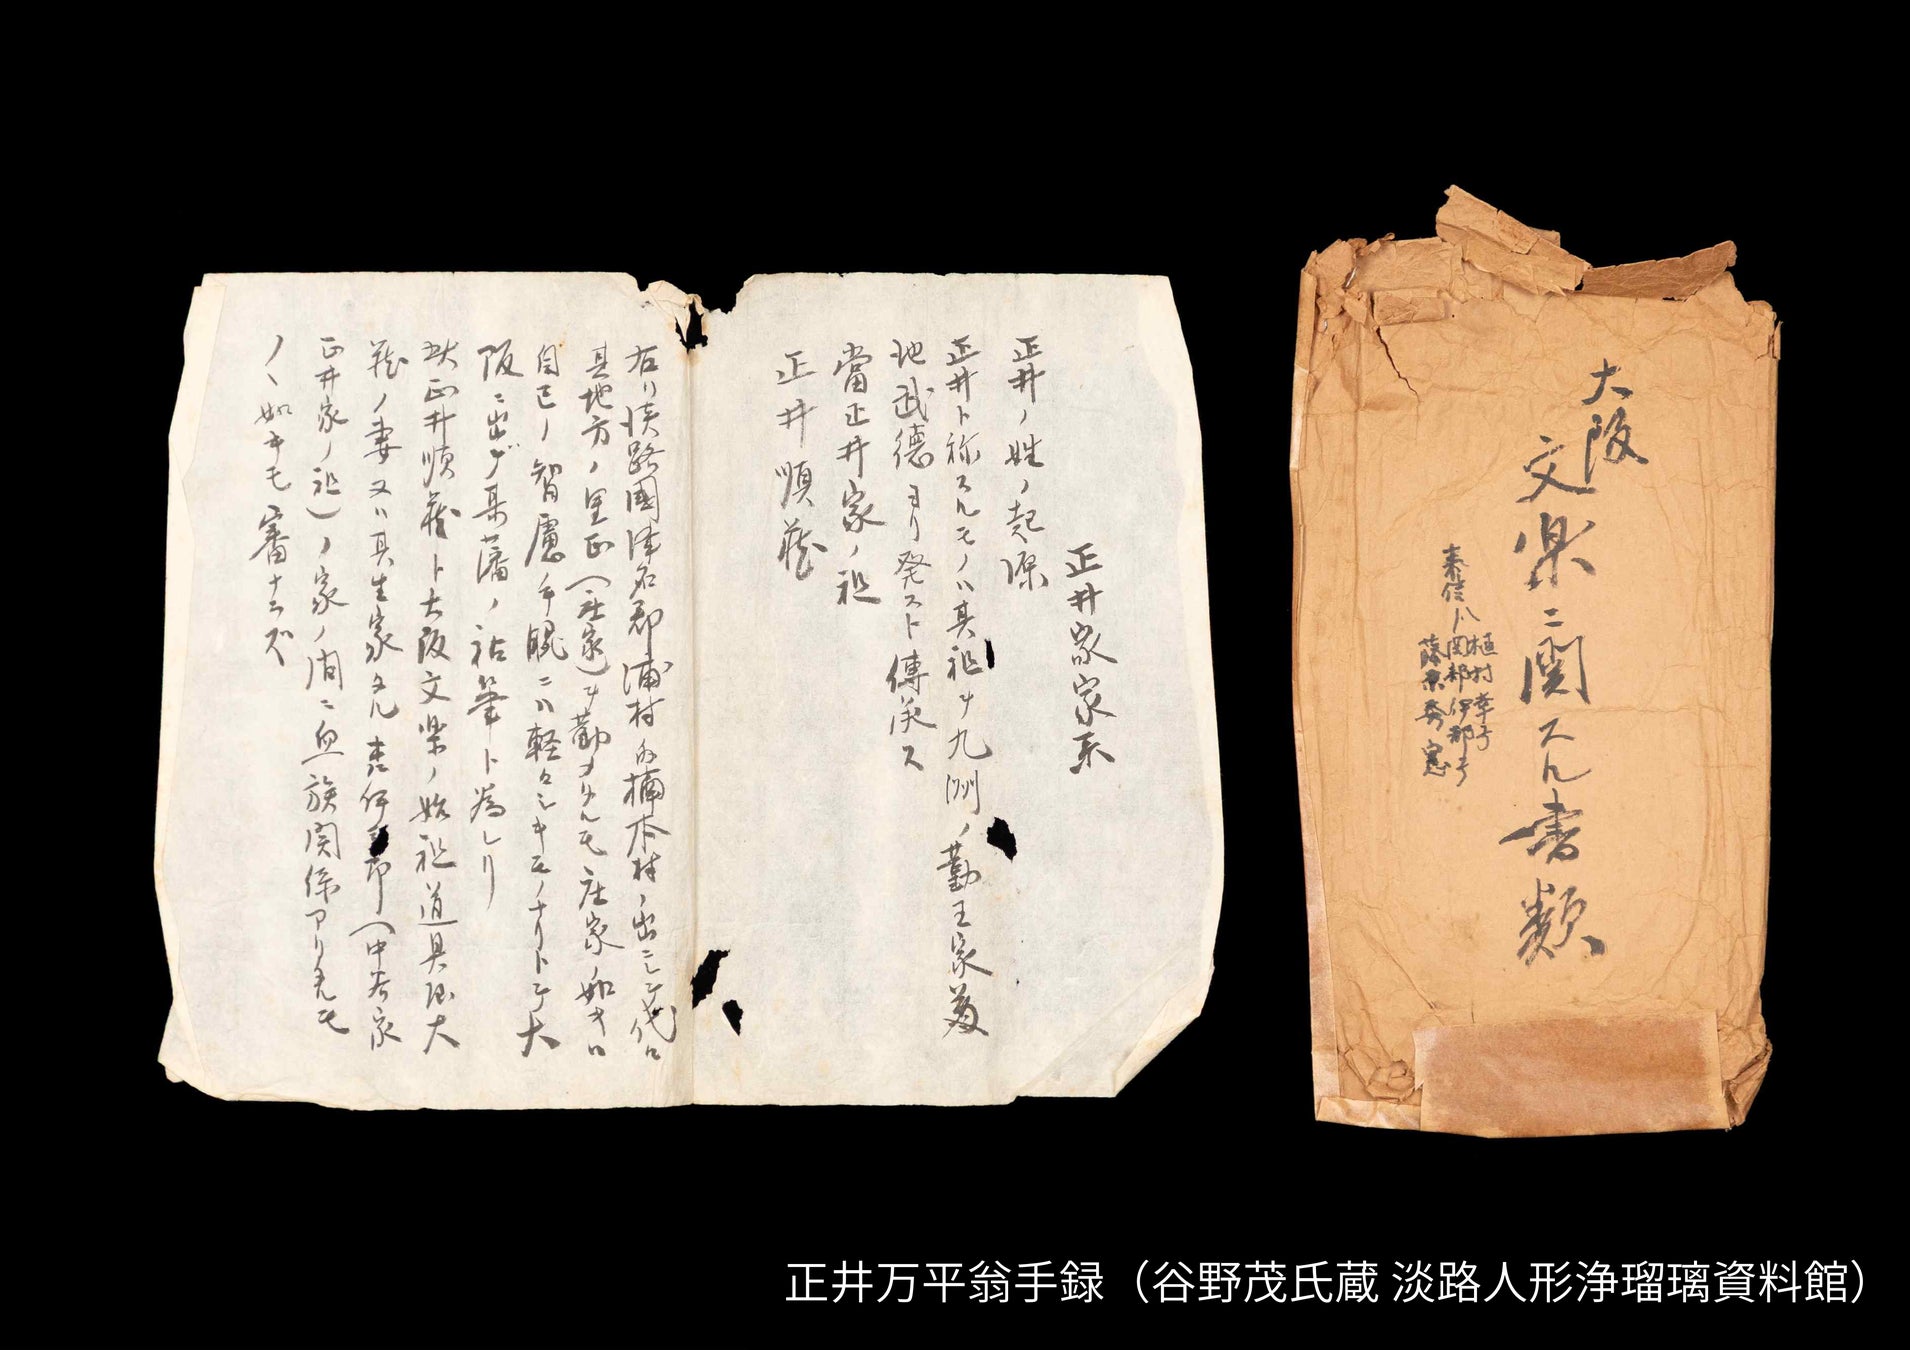 正井家家系
正井ノ姓ノ起源
正井ト称スルモノハ其祖ヲ九洲ノ勤王家菊
地武徳ヨリ発スト傳承ス
當正井家ノ祖
正井順蔵
右ハ淡路國津名郡浦村内楠本村ノ出ニシテ代々
其地方ノ里正(庄家)ヲ勤メタルモ庄家如キハ
自己ノ智慮手腕ニハ軽々シキモノナリトテ大
阪ニ出デ某藩ノ祐筆ト為レリ
状正井順蔵ト大阪文楽ノ始祖道具屋大
蔵ノ妻又ハ其生家タル 伊 郎(中谷家
正井家ノ祖)ノ家ノ間ニ血族関係アリタルモ
ノヽ如キモ審ナラズ
大阪
文楽ニ関スル書類
来信ハ
植村幸子
岡部伊都子
藤原秀憲
正井万平翁手録(谷野茂氏蔵 淡路人形浄瑠璃資料館)